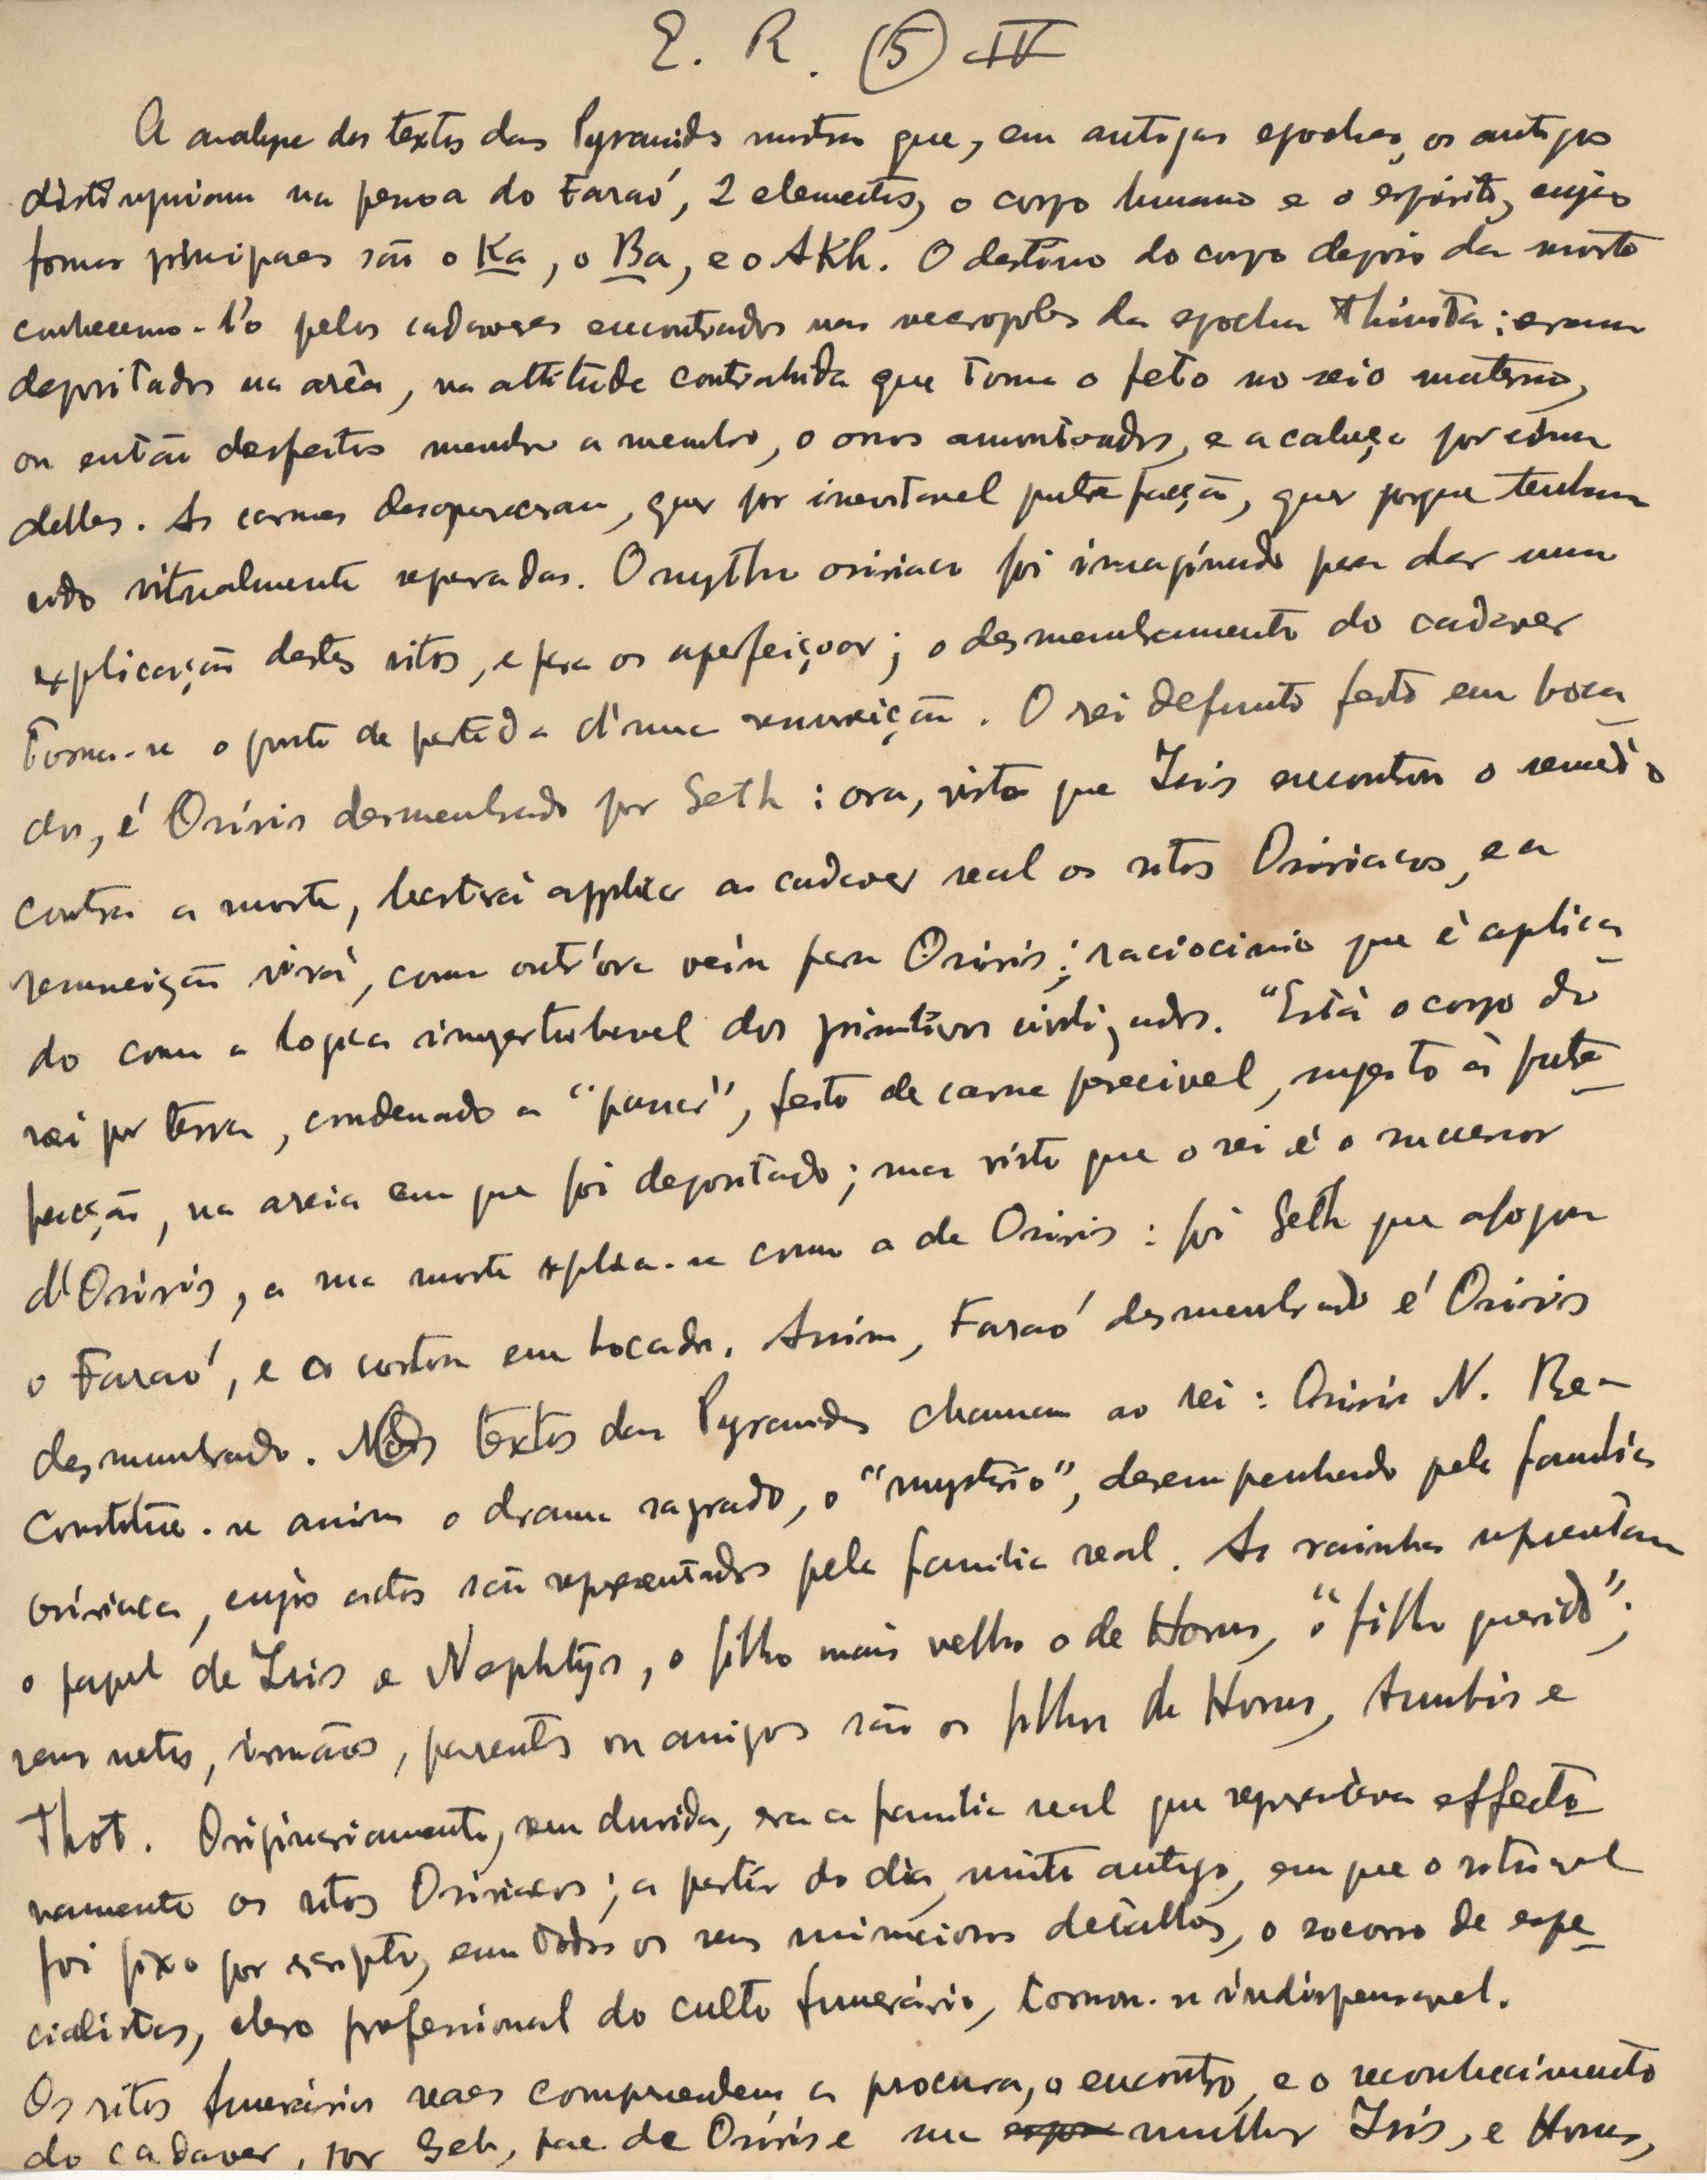 E. R. (5) IV
A analyse dos textos das Pyramides mostra que, em antigas epochas, os antigos
distinguiam na pessoa do Faraó, 2 elementos, o corpo humano e o espirito, cujas
formas principaes são o Ka, o Ba, e o AKh. O destino do corpo depois da morte
conhecemo-l'o pelos cadaveres encontrados nas necropoles da epocha Thinita: eram
depositados na arêa, na attitude contrahida que toma o feto no seio materno,
ou então desfeitos membro a membro, o ossos amontoados, e a cabeça por cima
delles. As carnes desapareceram, quer por inevitavel putrefacção, quer porque tenham
sido ritualmente separadas. O mytho osiriaco foi imaginado para dar uma
explicação destes ritos, e para os aperfeiçoar; o desmembramento do cadaver
torna-se o ponto de partida d'uma resurreição. O rei defunto feito em boca-
dos, é Osiris desmembrado por Seth: ora, visto que Isis encontrou o remedio
contra a morte, bastará applicar ao cadaver real os ritos Osiriacos, e a
resurreição virá, como outr'ora veiu para Osiris; raciocinio que é aplica-
do com a logica impertubavel dos primitivos civilizados. "Está o corpo do
rei por terra, condenado a "passar", feito de carne perecivel, sugeito á putre-
facção, na areia em que foi depositado; mas visto que o rei é o successor
d'Osiris, a sua morte explica-se como a de Osiris: foi Seth que afogou
o Faraó, e o cortou em bocados. Assim, Faraó desmembrado é Osiris
desmembrado. Nos textos das Pyramides chamam ao rei: Osiris N. Re-
constitue-se assim o drama sagrado, o "mysterio", desempenhado pela familia
osiriaca, cujos actos são representados pela familia real. As rainhas representam
o papel de Isis e Nephtys, o filho mais velho o de Horus, "o filho querido";
seus netos, irmãos, parentes ou amigos são os filhos de Horus, Anubis e
Thot. Originariamente, sem duvida, era a familia real que representava effecti-
vamente os ritos Osiriacos; a partir do dia, muito antigo, em que o ritual
foi fixo por escripto, em todos os seus minuciosos detalhes, o socorro de espe-
cialistas, clero professional do culto funerário, tornou-se indispensavel.
Os ritos funerários reaes comprendem a procura, o encontro, e o reconhecimento
do cadaver, por Geb, pae de Osiris e sua mulher Isis, e Horus,